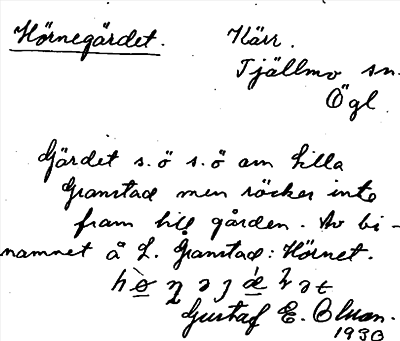 Hörnegärdet. Kärr.
Tjällmo sn.
Ögl.
Gärdet s.ö s.ö om Lilla
Granstad men räcker inte
fram till gården. Av bi-
namnet å L. Granstad: Hörnet.
Gustaf E. Olsson.
1930